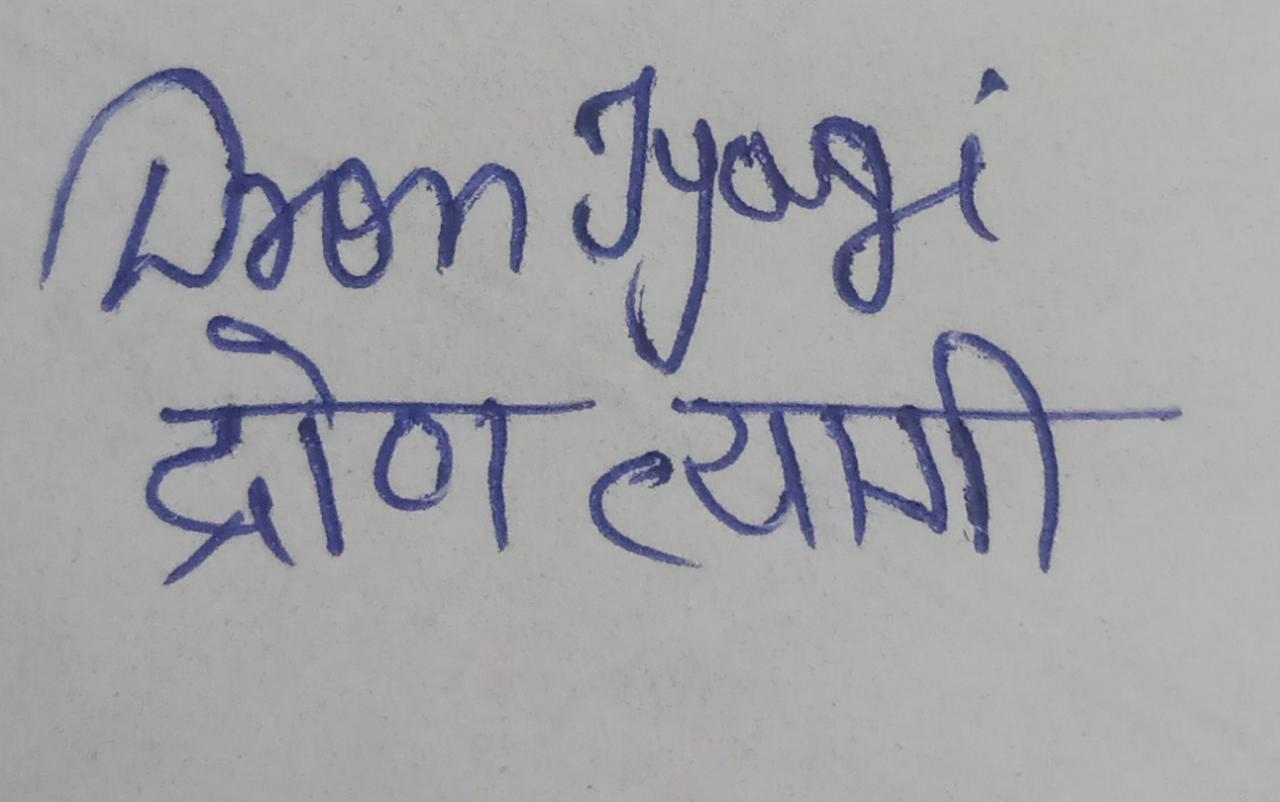 Dron Tyagi
द्रोण त्यागी